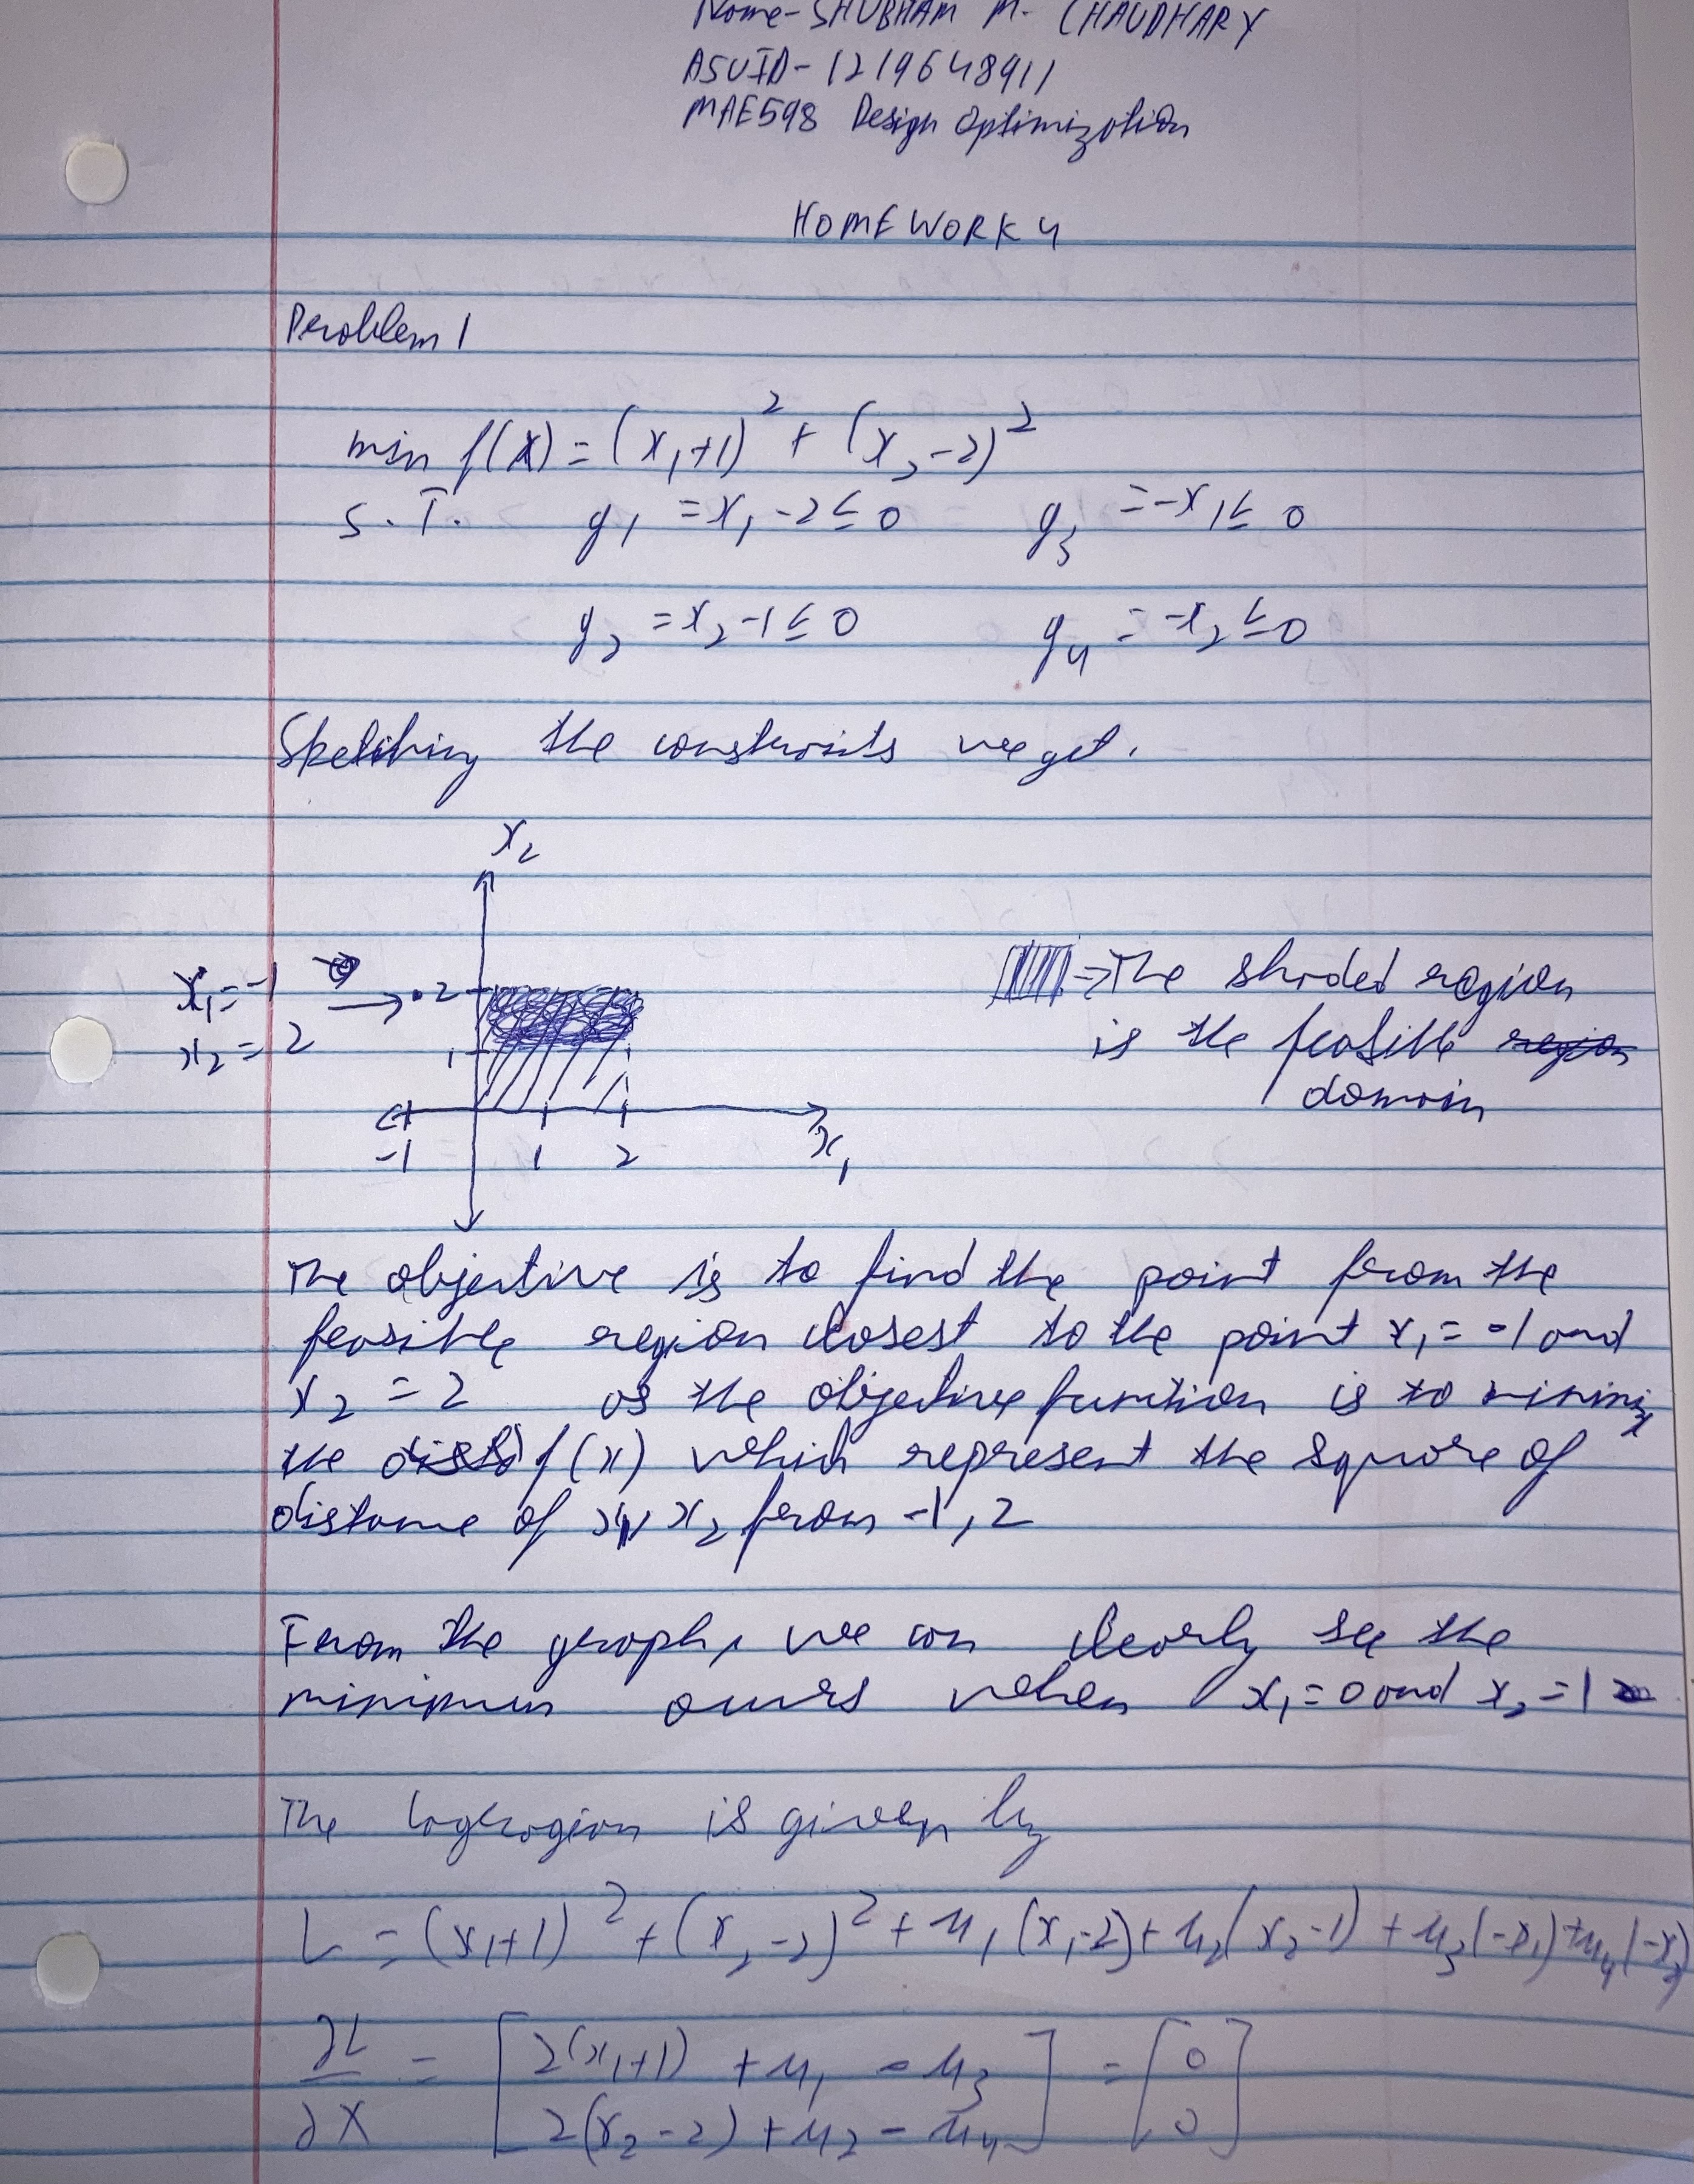 Name- SHUBHAM M. CHAUDHARY
ASUID- 1219648911
MAE598 Design Optimization
HOMEWORK 4
Problem 1
min f(x) = (x₁+1)² + (x₂-2)²
S.T. g₁ = x₁-2 ≤ 0 g₃ = -x₁ ≤ 0
g₂ = x₂-1 ≤ 0 g₄ = -x₂ ≤ 0
Sketching the constraints we get.
x₂
x₁ = -1 → 2
x₂ = 2
1
-1 1 2 x₁
⇒ The shaded region
is the feasible region
domain
The objective is to find the point from the
feasible region closest to the point x₁ = -1 and
x₂ = 2 as the objective function is to minimize
the f(x) which represent the square of
distance of x₁, x₂ from -1, 2
From the graph, we can clearly see the
minimum occurs when x₁ = 0 and x₂ = 1
The lagragian is given by
L = (x₁+1)² + (x₂-2)² + μ₁(x₁-2) + μ₂(x₂-1) + μ₃(-x₁) + μ₄(-x₂)
∂L = [ 2(x₁+1) + μ₁ - μ₃ ] = [ 0 ]
∂X [ 2(x₂-2) + μ₂ - μ₄ ] [ 0 ]